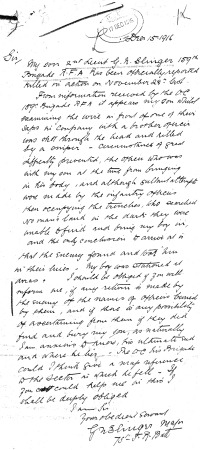 Dec 15th 1916
Sir,
My son 2nd Lieut G. N. Elringr 159th
Brigade R.F.A has been officially reported
killed in action on November 28th last
From information received by the O.C
159th Brigade R.F.A it appears my son whilst
examining the wire in front of one of their
saps in company with a brother officer
was shot through the head and killed
by a sniper - Circumstances of great
difficulty prevented the officer who was
with my son at the time from bringing
in his body, and although gallant attempts
were made by the infantry officers
then occupying the trenches, who searched
no man's land in the dark they were
unable to find and bring my boy in,
and the only conclusion to arrive at is
that the enemy found and took him
in their lines. My boy was stationed at
Arras. I should be obliged if you will
inform me, if any return is made by
the enemy of the names of officers buried
by them, and if there is any possibility
of ascertaining from them if they did
find and bury my son, as naturally
I am anxious to know, his ultimate end
and where he lies - The O.C his Brigade
could I think give a map reference
to the sector in which he fell - If
you could help me in this I
shall be deeply obliged
I am Sir
Your obedient Servant
Major